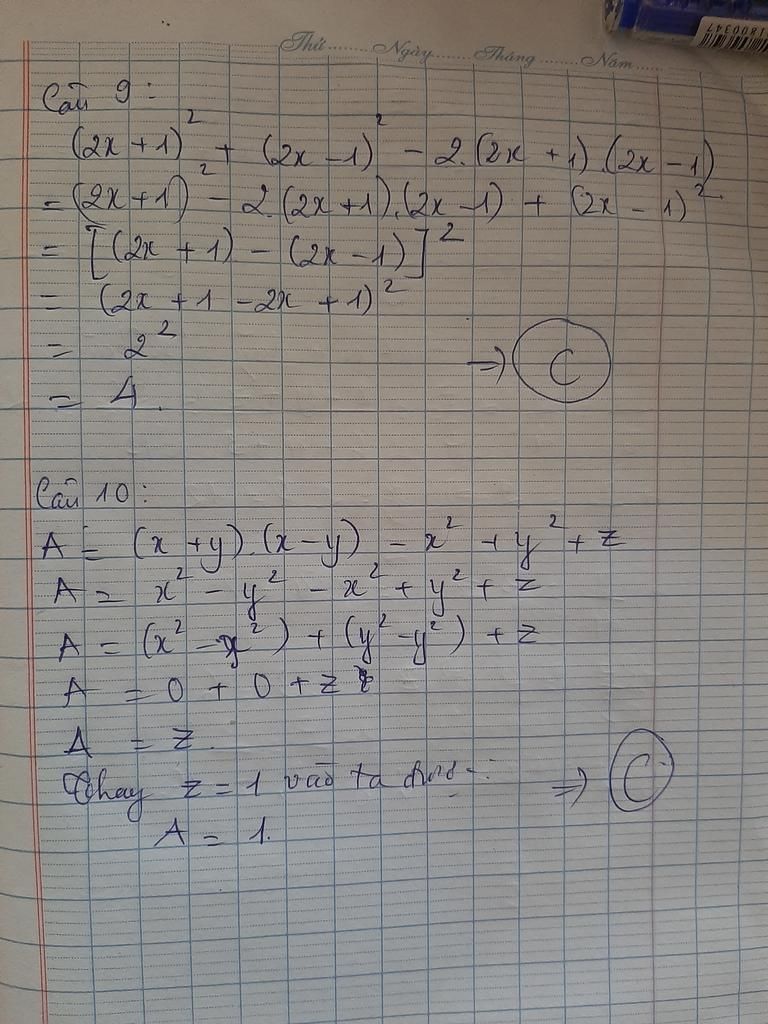 Thứ.........Ngày.......Tháng........Năm......
11800347
Câu 9:
(2x + 1)² + (2x - 1)² - 2.(2x + 1).(2x - 1)
= (2x + 1)² - 2.(2x + 1).(2x - 1) + (2x - 1)²
= [(2x + 1) - (2x - 1)]²
= (2x + 1 - 2x + 1)²
= 2²
= 4.
=> C
Câu 10:
A = (x + y).(x - y) - x² + y² + z
A = x² - y² - x² + y² + z
A = (x² - x²) + (y² - y²) + z
A = 0 + 0 + z
A = z.
Thay z = 1 vào ta được:
=> C
A = 1.